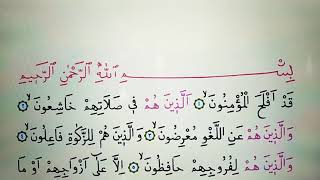 بِسْمِ اللّٰهِ الرَّحْمٰنِ الرَّحِيمِ
قَدْ اَفْلَحَ الْمُؤْمِنُونَۙ ١ اَلَّذِينَ هُمْ فِى صَلَاتِهِمْ خَاشِعُونَۙ ٢
وَالَّذِينَ هُمْ عَنِ اللَّغْوِ مُعْرِضُونَۙ ٣ وَالَّذِينَ هُمْ لِلزَّكٰوةِ فَاعِلُونَۙ ٤
وَالَّذِينَ هُمْ لِفُرُوجِهِمْ حَافِظُونَۙ ٥ اِلَّا عَلٰٓى اَزْوَاجِهِمْ اَوْ مَا